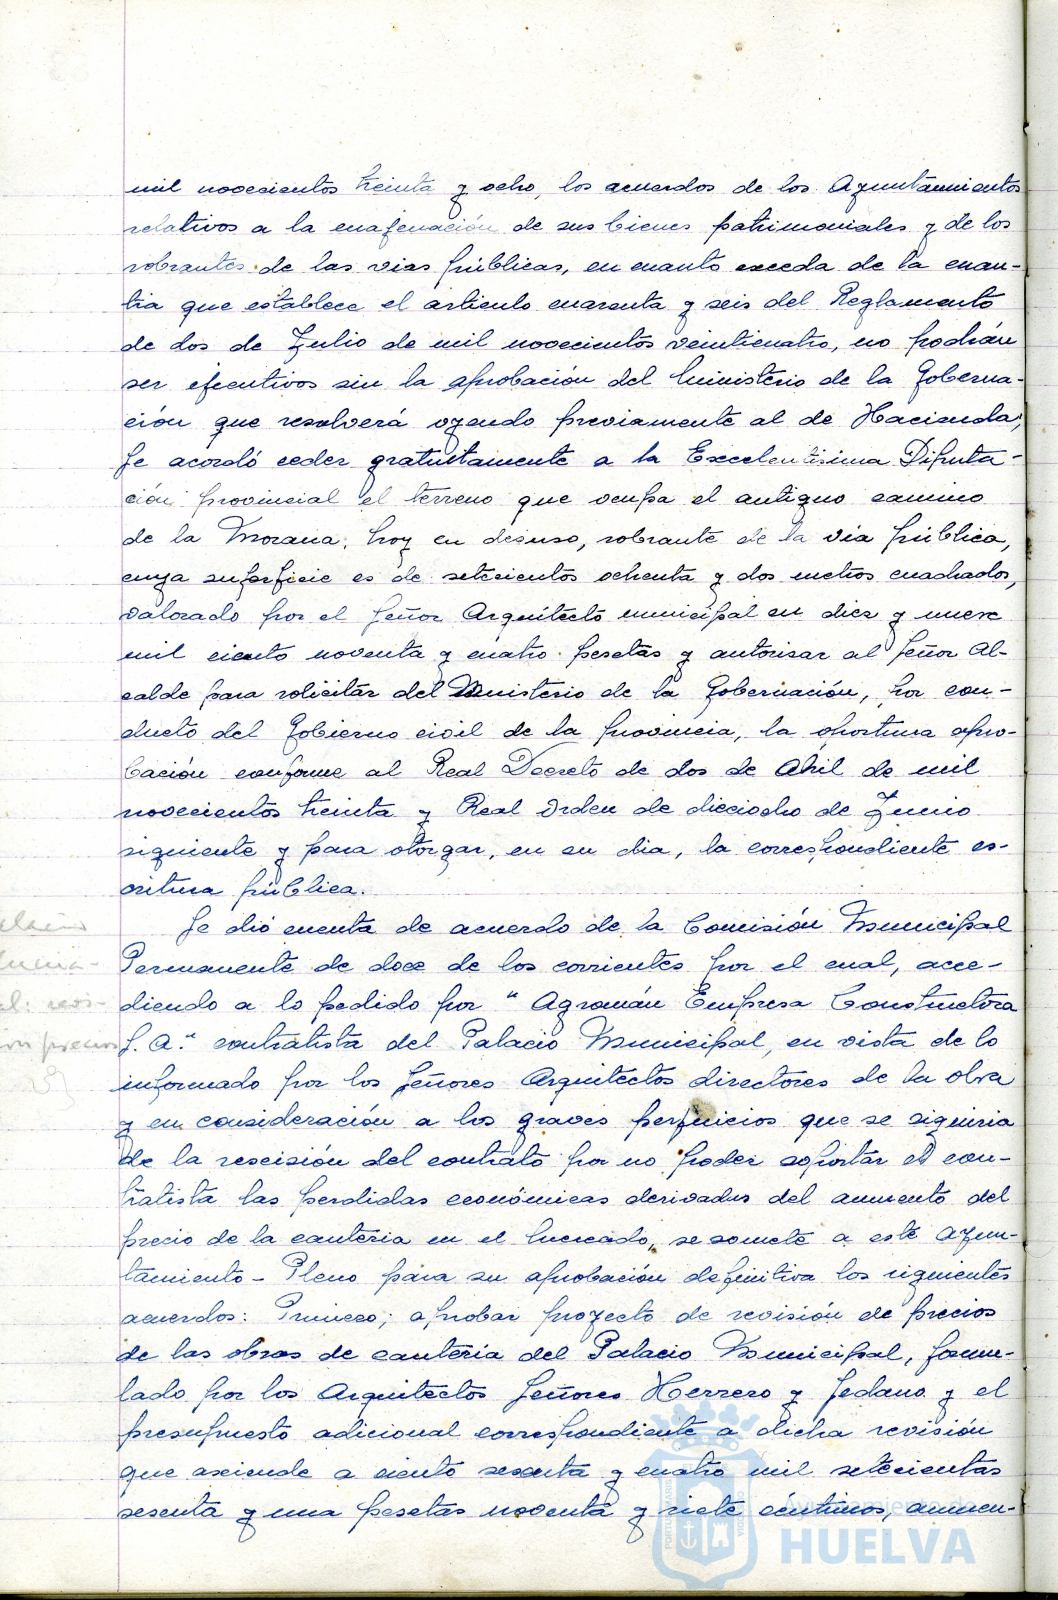 mil novecientos treinta y ocho, los acuerdos de los Ayuntamientos
relativos a la enajenación de sus bienes patrimoniales y de los
sobrantes de las vias públicas, en cuanto exceda de la cuan-
tia que establece el articulo cuarenta y seis del Reglamento
de dos de Julio de mil novecientos veinticuatro, no podrán
ser ejecutivos sin la aprobación del Ministerio de la Goberna-
ción que resolverá oyendo previamente al de Hacienda;
Se acordó ceder gratuitamente a la Excelentisima Diputa-
ción provincial el terreno que ocupa el antiguo camino
de la Morana, hoy en desuso, sobrante de la via pública,
cuya superficie es de setecientos ochenta y dos metros cuadrados,
valorado por el Señor Arquitecto municipal en diez y nueve
mil ciento noventa y cuatro pesetas y autorisar al Señor Al-
calde para solicitar del Ministerio de la Gobernación, por con-
ducto del Gobierno civil de la provincia, la oportuna apro-
bación conforme al Real Decreto de dos de Abril de mil
novecientos treinta y Real Orden de dieciocho de Junio
siguiente y para otorgar, en su dia, la correspondiente es-
critura pública.
Se dió cuenta de acuerdo de la Comisión Municipal
Permanente de doce de los corrientes por el cual, acce-
diendo a lo pedido por " Agromán Empresa Constructora
S. A." contratista del Palacio Municipal, en vista de lo
informado por los Señores Arquitectos directores de la obra
y en consideración a los graves perjuicios que se siguiria
de la rescisión del contrato por no poder soportar el con-
tratista las perdidas económicas derivadas del aumento del
precio de la canteria en el mercado, se somete a este Ayun-
tamiento - Pleno para su aprobación definitiva los siguientes
acuerdos: Primero; aprobar proyecto de revisión de precios
de las obras de canteria del Palacio Municipal, formu-
lado por los Arquitectos Señores Herrero y Sedano y el
presupuesto adicional correspondiente a dicha revisión
que asciende a ciento sesenta y cuatro mil setecientas
sesenta y una pesetas noventa y siete céntimos, aumen-
Ayuntamiento de
HUELVA